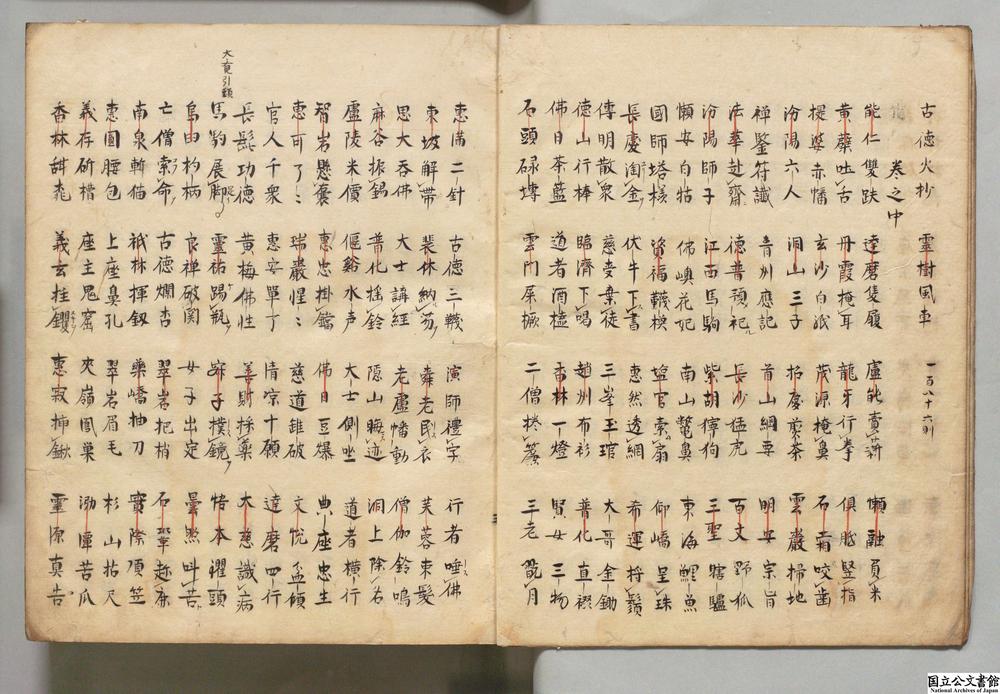 古徳火抄　靈樹風車　一百八十六則
巻之中
能仁雙趺　達磨隻履　盧能賣薪　懶融負米
黄蘗吐舌　丹霞掩耳　龍牙行拳　倶胝竪指
提婆赤幡　玄沙白紙　茂源掩鼻　石霜咬歯
汾陽六人　洞山三子　招慶煎茶　雲巖掃地
禅鑒符讖　青州應記　首山綱要　明安宗旨
法華赴齋　徳普預祀　長沙猛虎　百丈野狐
汾陽師子　江西馬駒　紫胡獰狗　三聖瞎驢
懶安白牯　佛嶼花妃　南山鼈鼻　東海鯉魚
國師塔様　資福韈様　塩官索扇　仰嶠呈珠
長慶淘金　伏牛下書　惠然透網　希運捋鬚
傳明散衆　慈受棄徒　三峯玉琯　大哥金鋤
徳山行棒　臨濟下喝　趙州布衫　普化直裰
佛日茶籃　道者酒榼　香林一燈　賢女三物
石頭碌塼　雲門屎橛　二僧捲簾　三老翫月
惠満二針　古徳三韈　演師禮字　行者唾佛
東坡解帯　裴休納笏　舜老民衣　芙蓉束髪
思大呑佛　大士講経　老盧幡動　僧伽鈴鳴
麻谷振錫　普化揺鈴　隠山晦迹　洞上除名
盧陵米價　傴谿水声　大士側坐　道者横行
智岩懸嚢　惠忠掛鐺　佛日豆爆　典座忠生
惠可了〻　瑞巖惺〻　慈道錐破　文悦盆傾
官人千衆　惠安單丁　情凉十願　達磨四行
長髭功徳　黄梅佛性　善財採薬　大慈識病
大寛引頸
馬豹展脚　靈祐踢瓶　子撲鏡　悟本濯頭
烏臼杓柄　良禅破関　女子出定　曇照叫苦
亡僧索命　古徳爛杏　翠岩把梢　石鞏趂鹿
南泉斬猫　祇林揮釼　藥嶠抽刀　寳際頂笠
惠圓腰包　上座鼻孔　翠岩眉毛　杉山拈尺
義存斫槽　座主鬼窟　夾嶺鳳巣　泐潭苦瓜
香林甜桃　義玄拄钁　惠寂挿鍬　靈源真告
国立公文書館
National Archives of Japan